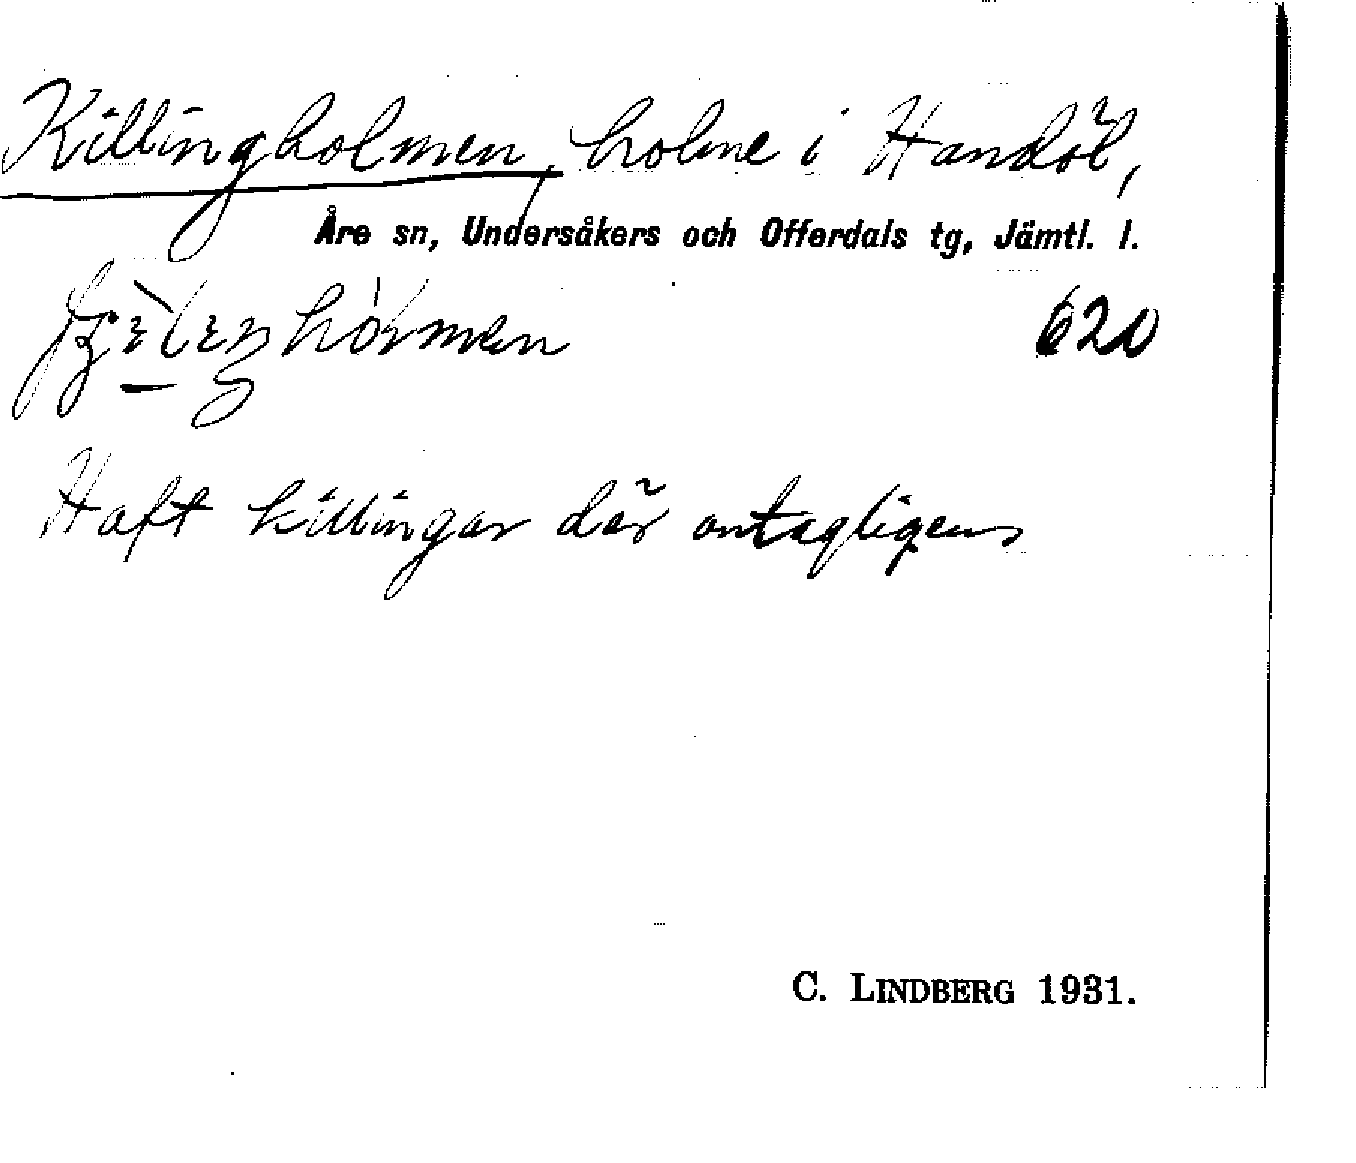 Killingholmen, holme i Handöl,
Åre sn, Undersåkers och Offerdals tg, Jämtl. l.
620
Haft killingar där antagligens
C. LINDBERG 1931.